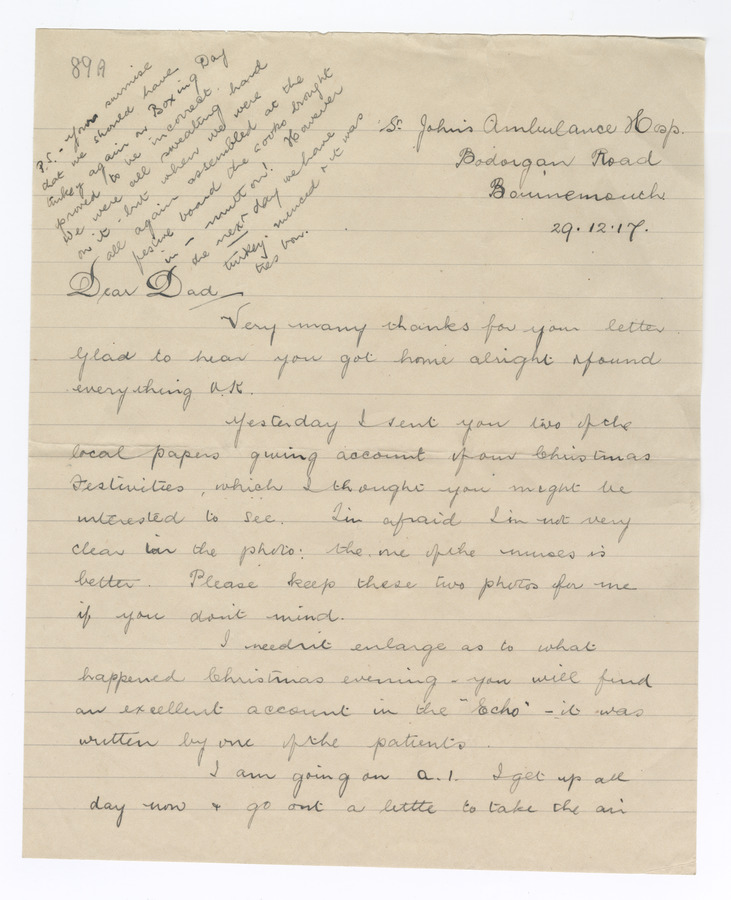 89A
P.S. - Your surmise
that we should have
turkey again on Boxing Day
proved to be incorrect.
We were all sweating hard
on it - but when we were
all again assembled at the
festive board the cooks brought
in - mutton! However
the next day we have
turkey minced & it was
très bon.
St. John's Ambulance Hosp.
Bodorgan Road
Bournemouth
29.12.17.
Dear Dad
Very many thanks for your letter.
Glad to hear you got home alright & found
everything O.K.
Yesterday I sent you two of the
local papers giving account of our Christmas
Festivities, which I thought you might be
interested to see. I'm afraid I'm not very
clear in the photo: the one of the nurses is
better. Please keep these two photos for me
if you don't mind.
I needn't enlarge as to what
happened Christmas evening - you will find
an excellent account in the "Echo" - it was
written by one of the patients.
I am going on A.1. I get up all
day now & go out a little to take the air